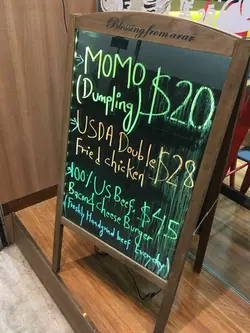 Blessing from arar
→ MOMO
(Dumpling) $20
→ USDA Double
Fried chicken $28
→ 100% US Beef
Bacon & cheese Burger $45
(Freshly Handground beef Everyday)